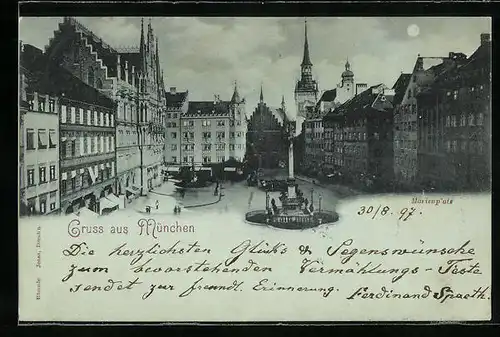 Marienplatz
30/8. 97.
Gruss aus München
Die herzlichsten Glücks & Segenswünsche
zum bevorstehenden Vermählungs-Feste
sendet zur freundl. Erinnerung. Ferdinand Spaeth.